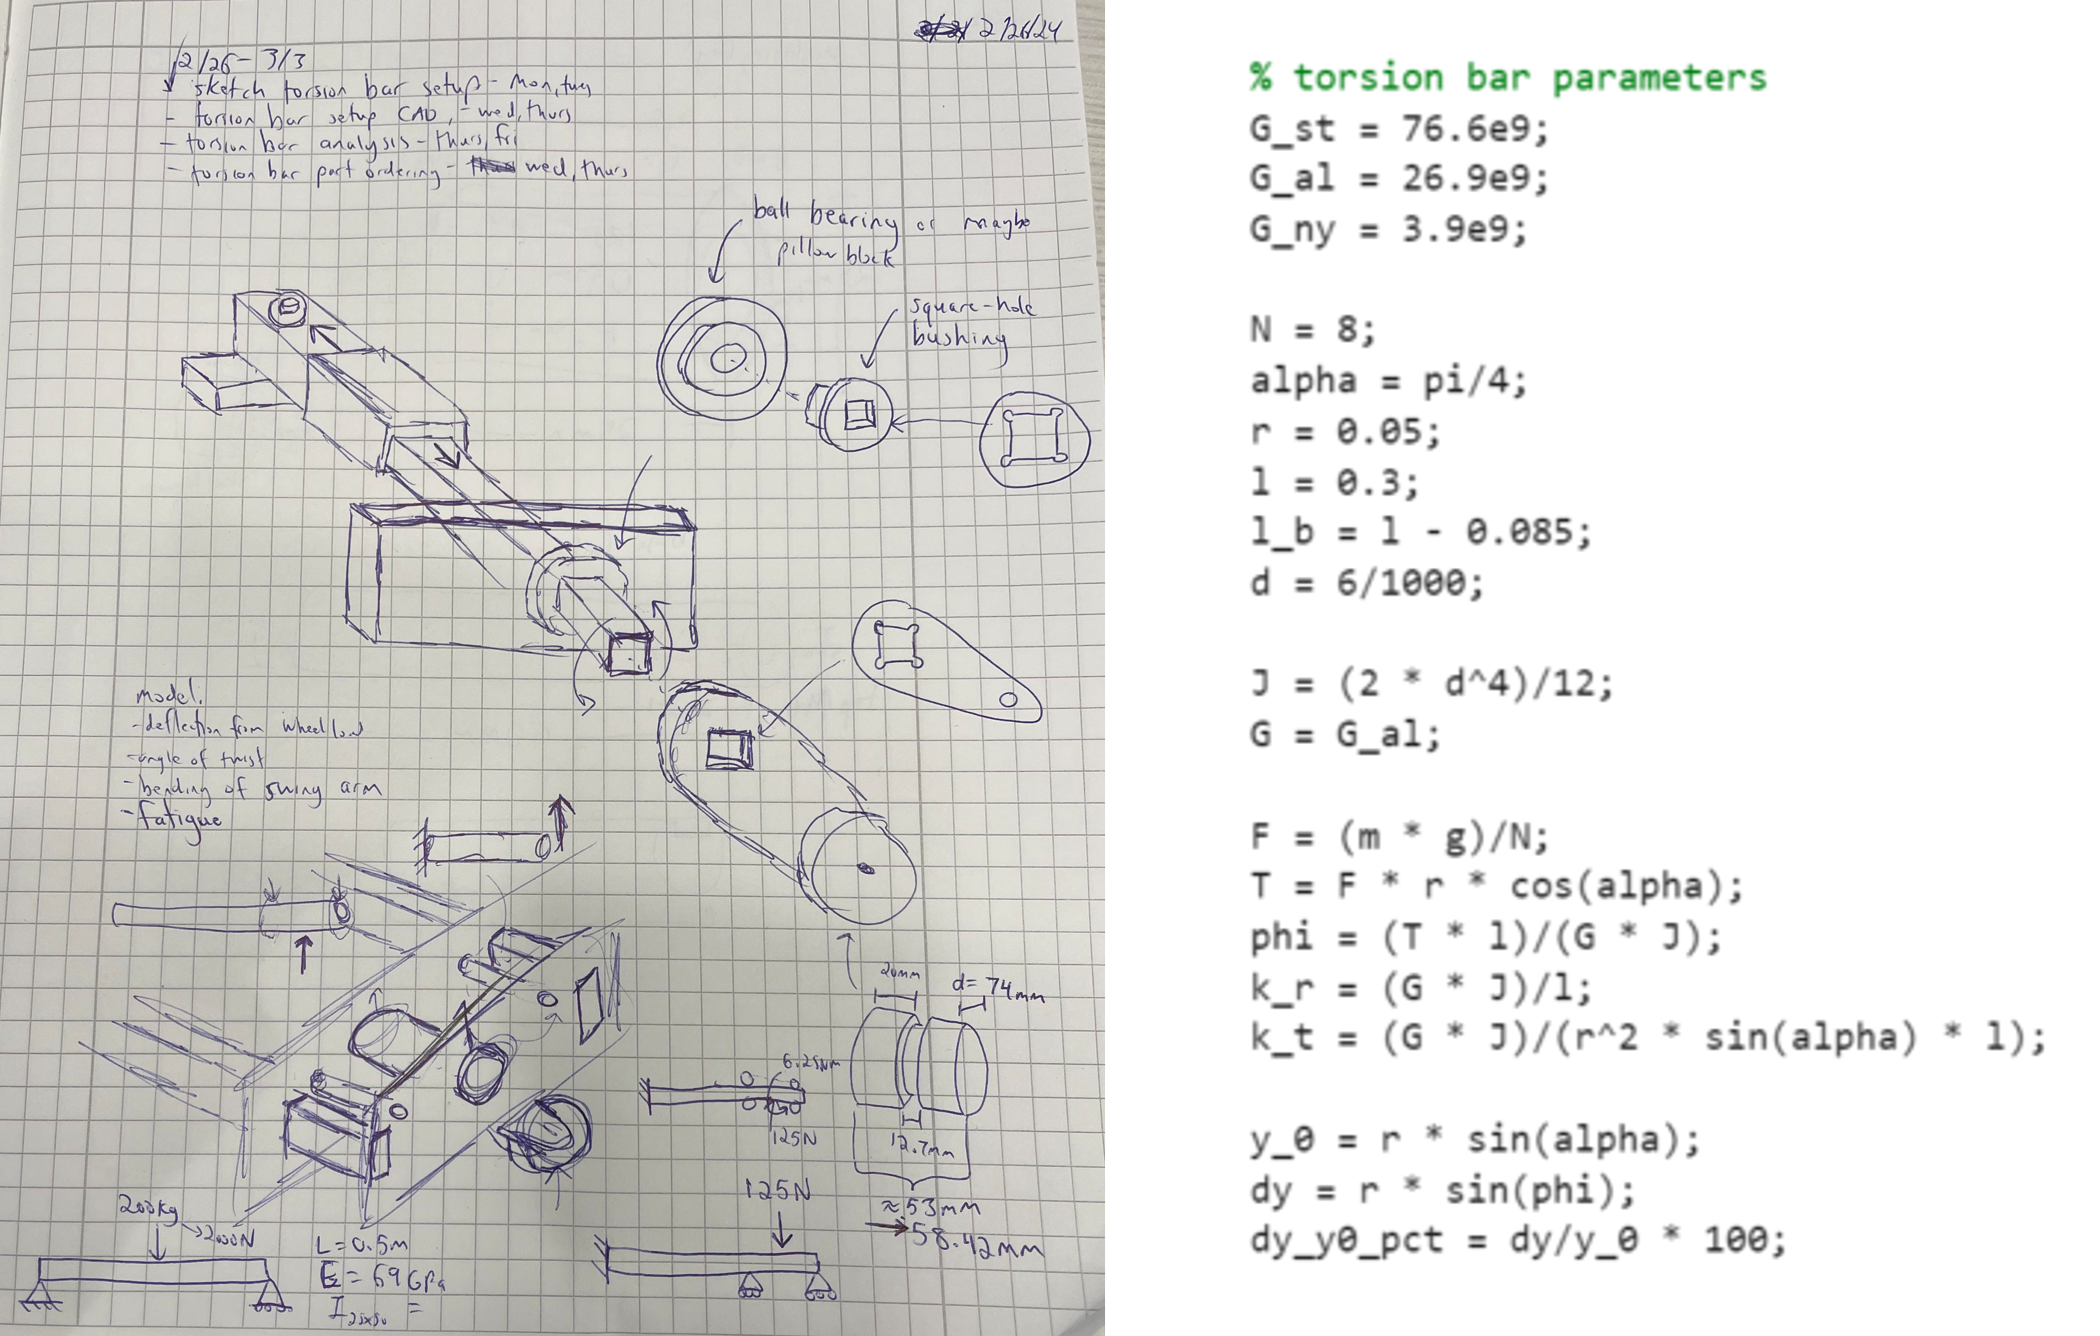 2/26/24
2/26 - 3/3
sketch torsion bar setup - Mon, tues
- torsion bar setup CAD, - wed, thurs
- torsion bar analysis - thurs, fri
- torsion bar part ordering - wed, thurs
ball bearing or maybe
pillow block
square-hole
bushing
model:
- deflection from wheel load
- angle of twist
- bending of swing arm
- fatigue
20mm
d= 74mm
6.25Nm
125N
12.7mm
≈53mm
→58.42mm
125N
200kg
→2000N
L=0.5m
E=69GPa
I =
% torsion bar parameters
G_st = 76.6e9;
G_al = 26.9e9;
G_ny = 3.9e9;
N = 8;
alpha = pi/4;
r = 0.05;
l = 0.3;
l_b = l - 0.085;
d = 6/1000;
J = (2 * d^4)/12;
G = G_al;
F = (m * g)/N;
T = F * r * cos(alpha);
phi = (T * l)/(G * J);
k_r = (G * J)/l;
k_t = (G * J)/(r^2 * sin(alpha) * l);
y_0 = r * sin(alpha);
dy = r * sin(phi);
dy_y0_pct = dy/y_0 * 100;